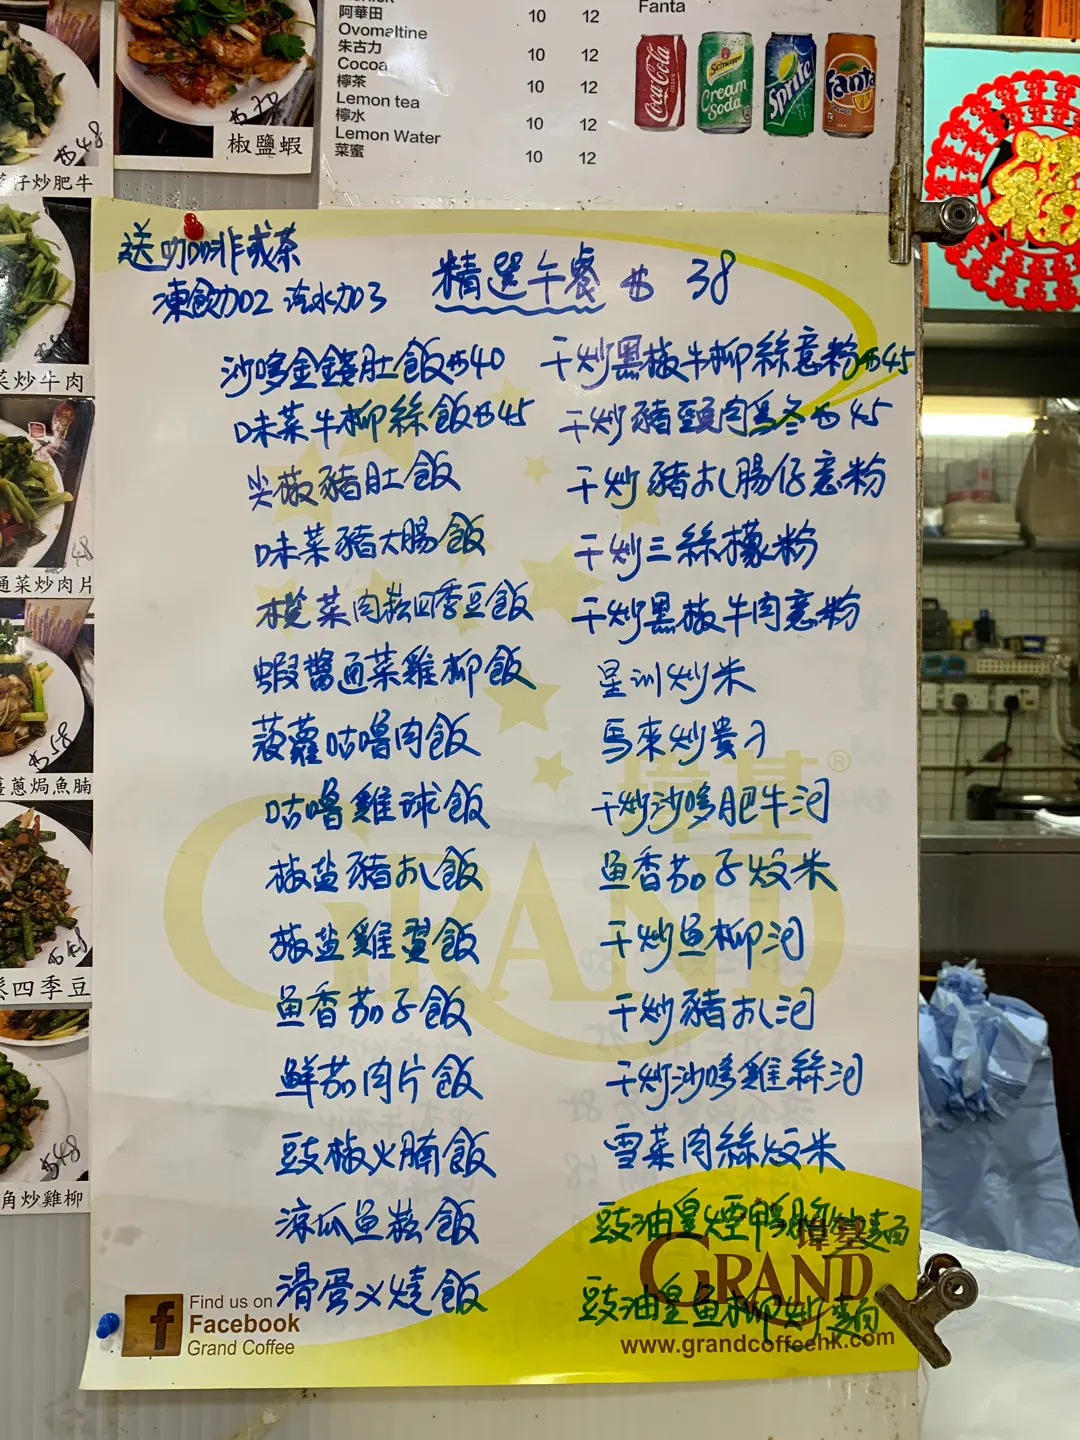 阿華田 10 12
Ovomaltine
朱古力 10 12
Cocoa
檸茶 10 12
Lemon tea
檸水 10 12
Lemon Water
菜蜜 10 12
Fanta
Coca-Cola
Schweppes
Cream Soda
Sprite
Fanta
福
$48
仔炒肥牛
$70
椒鹽蝦
菜炒牛肉
48
通菜炒肉片
$58
薑蔥焗魚腩
$48
四季豆
$48
角炒雞柳
送咖啡或茶
凍飲加2 汽水加3
精選午餐 $38
沙嗲金錢肚飯$40
味菜牛柳絲飯$45
尖椒豬肚飯
味菜豬大腸飯
欖菜肉松四季豆飯
蝦醬通菜雞柳飯
菠蘿咕嚕肉飯
咕嚕雞球飯
椒盐豬扒飯
椒盐雞翼飯
鱼香茄子飯
鮮茄肉片飯
豉椒火腩飯
涼瓜鱼松飯
滑蛋义燒飯
干炒黑椒牛柳絲意粉$45
干炒豬頸肉烏冬$45
干炒豬扒腸仔意粉
干炒三絲檬粉
干炒黑椒牛肉意粉
星洲炒米
馬來炒貴刁
干炒沙嗲肥牛河
鱼香茄子炆米
干炒鱼柳河
干炒豬扒河
干炒沙嗲雞絲河
雪菜肉絲炆米
豉油皇煙鴨胸炒麵
豉油皇鱼柳炒麵
偉基®
GRAND
偉基
GRAND
www.grandcoffeehk.com
f
Find us on
Facebook
Grand Coffee